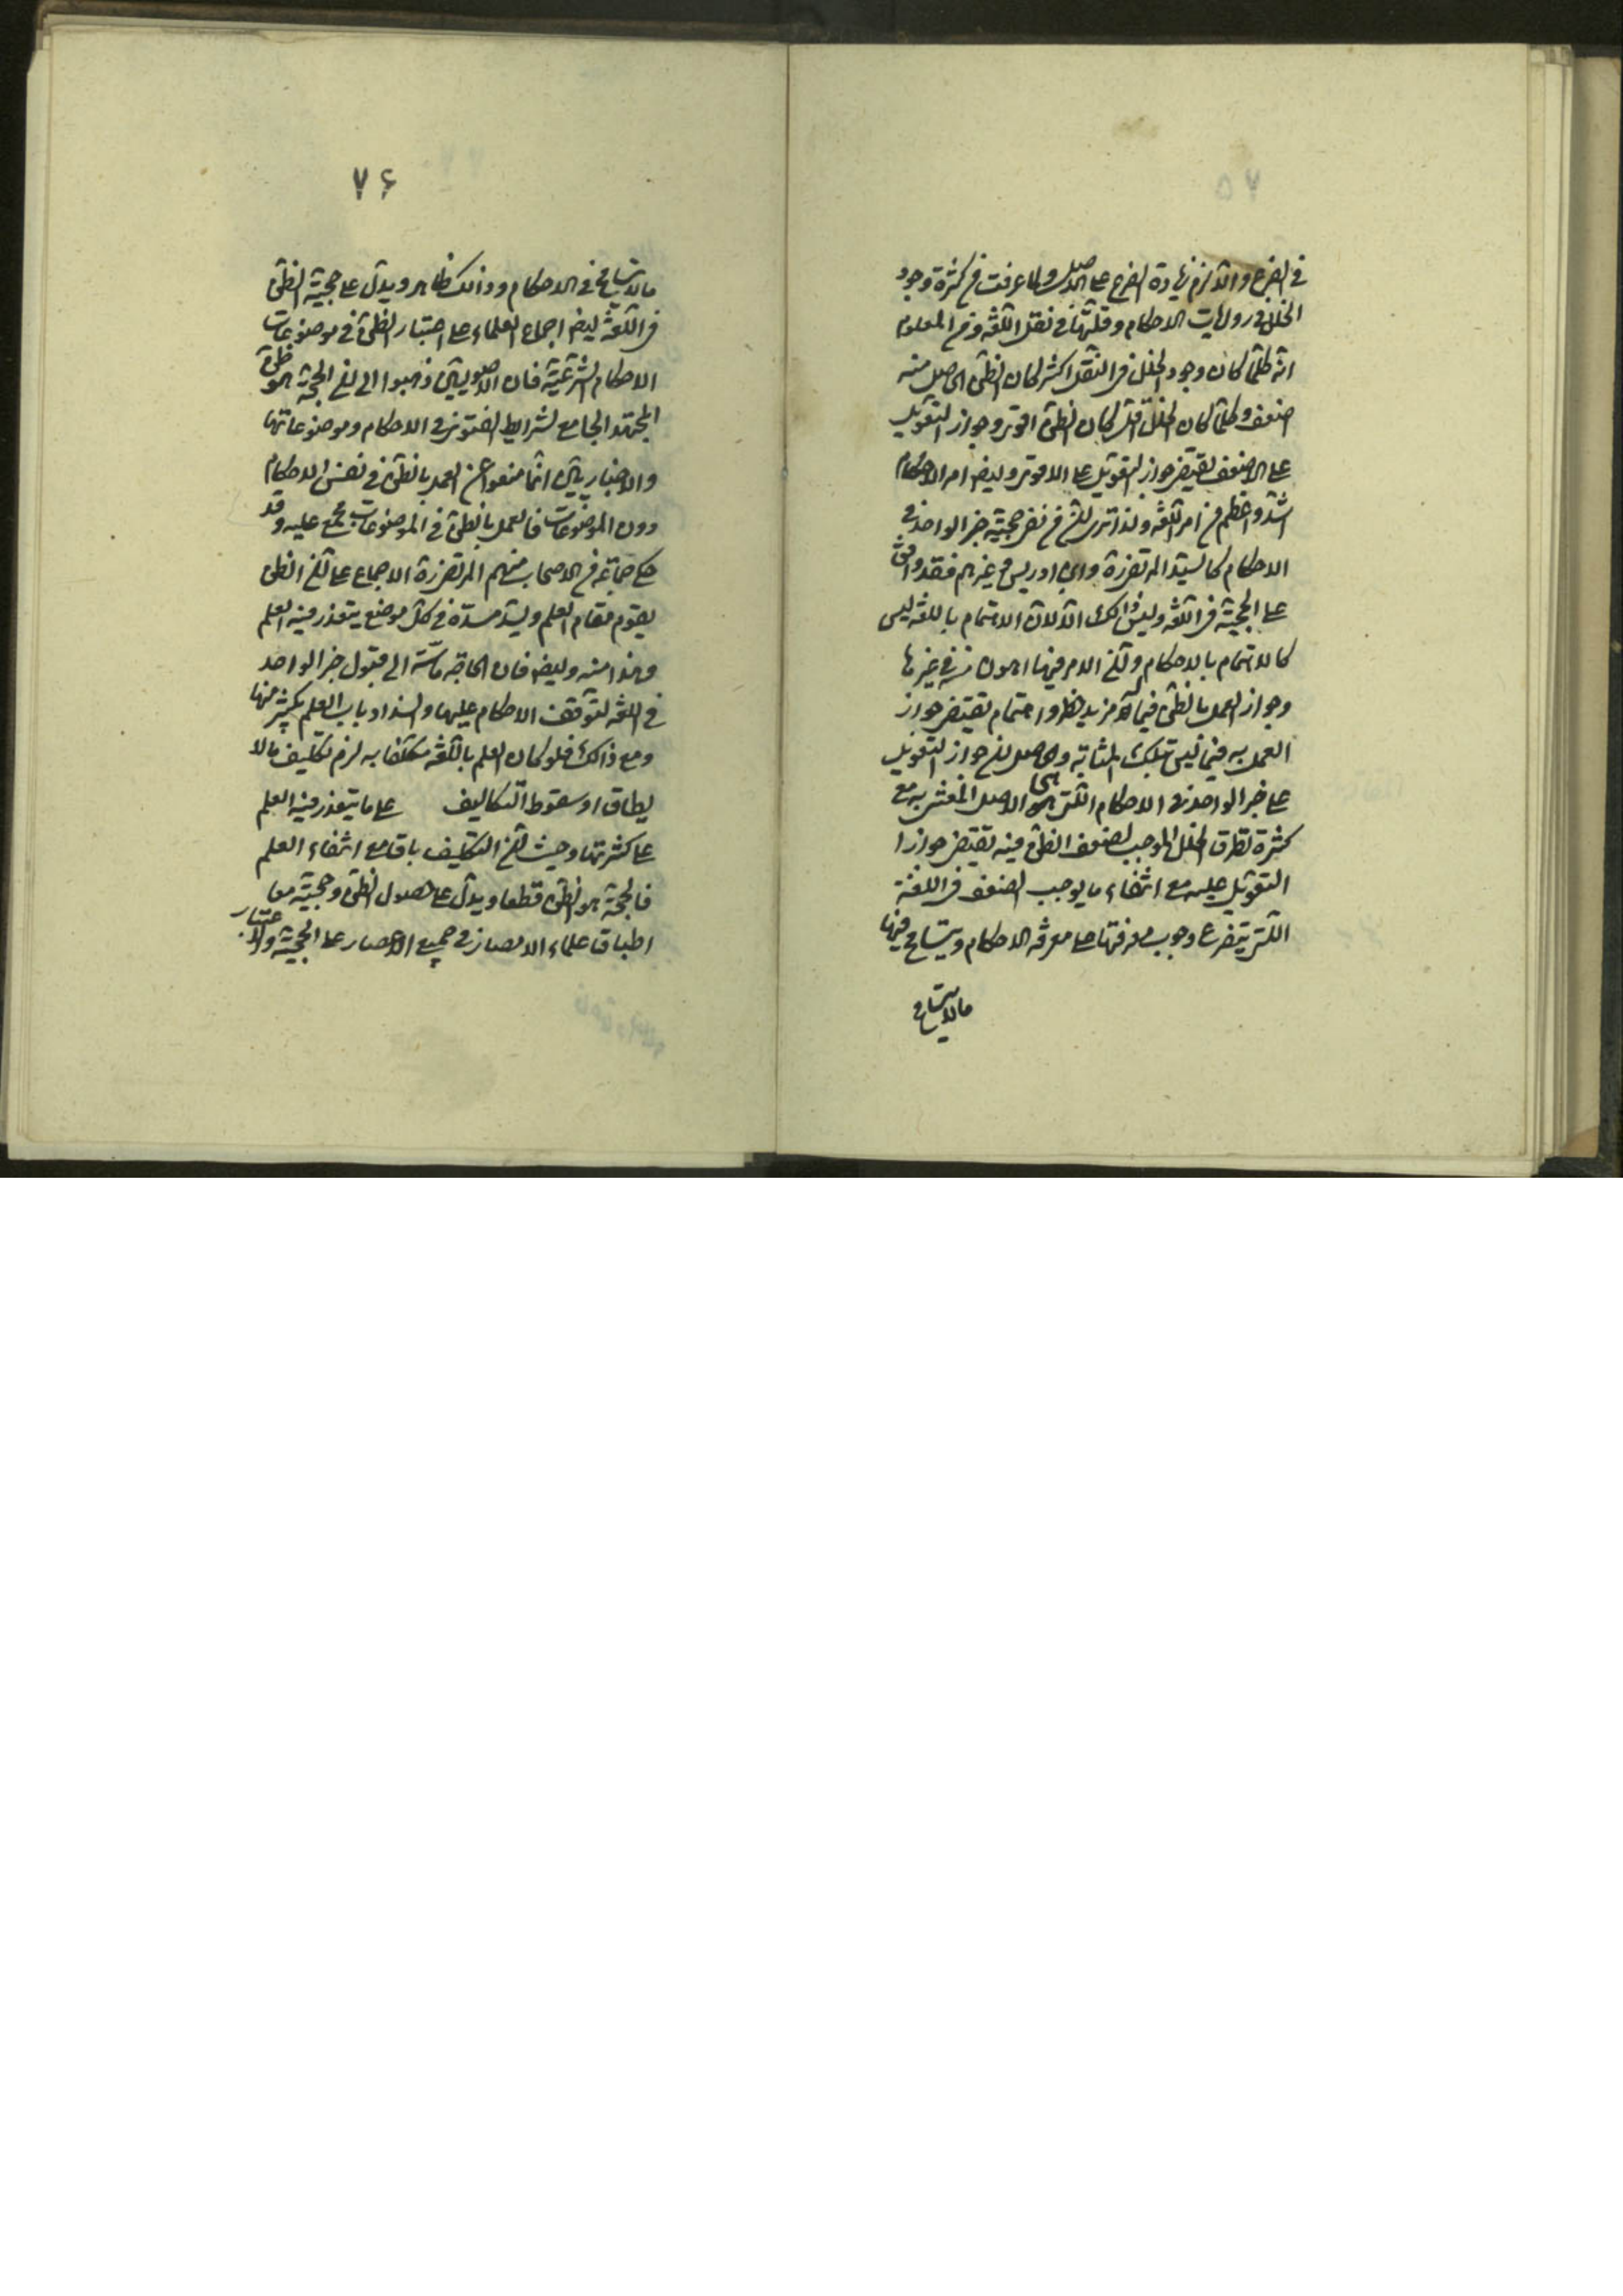 ٧٥
في الفرع والا لزم زيادة الفرع على الاصل ولما عرفت من كثرة وجود
الخلل في روايات الاحكام وقلّتها في نقل اللغة ومن المعلوم
انه كلّما كان وجود الخلل في النقل اكثر كان الظنّ الحاصل منه
اضعف وكلّما كان الخلل اقلّ كان الظنّ اقوى وجواز التعويل
على الاضعف يقتضي جواز التعويل على الاقوى وايضا امر الاحكام
اشدّ واعظم من امر اللغة ولذا ترى من نفى حجيّة خبر الواحد في
الاحكام كالسيّد المرتضى ره وابن ادريس وغيرهم فقد وافق
على الحجيّة في اللغة وليس ذالك الّا لانّ الاهتمام باللغة ليس
كالاهتمام بالاحكام وانّ الامر فيها اهون منه في غيرها
وجواز العمل بالظنّ فيما له مزيد خطر واهتمام يقتضي جواز
العمل به فيما ليس بتلك المثابة والحاصل انّ جواز التعويل
على خبر الواحد في الاحكام الّتي هي الاصل المعتنى به مع
كثرة تطرق الخلل الموجب لضعف الظنّ فيه يقتضي جواز
التعويل عليه مع انتفاء ما يوجب الضعف في اللغة
الّتي يتفرع وجوب معرفتها على معرفة الاحكام ويتسامح فيها
مالا يتسامح
٧٦
مالا يتسامح في الاحكام وذالك ظاهر ويدلّ على حجيّة الظنّ
في اللغة ايضا اجماع العلماء على اعتبار الظنّ في موضوعات
الاحكام الشرعيّة فان الاصوليّين ذهبوا الى انّ الحجّة هو ظنّ
المجتهد الجامع لشرايط الفتوى في الاحكام وموضوعاتها
والاخباريّين انّما منعوا عن العمل بالظنّ في نفس الاحكام
دون الموضوعات فالعمل بالظنّ في الموضوعات مجمع عليه وقد
حكى جماعة من الاصحاب منهم المرتضى ره الاجماع على انّ الظن
يقوم مقام العلم ويسدّ مسدّه في كلّ موضع يتعذر فيه العلم
وهذا منه وايضا فان الحاجة ماسّة الى قبول خبر الواحد
في اللغة لتوقف الاحكام عليها وانسداد باب العلم بكثير منها
ومع ذالك فلو كان العلم باللغة مكلّفا به لزم تكليف مالا
يطاق او سقوط التكاليف على ما يتعذر فيه العلم
على كثرتها وحيث انّ التكليف باق مع انتفاء العلم
فالحجّة هو الظنّ قطعا ويدلّ على حصول الظنّ وحجيّته معا
اطباق علماء الامصار في جميع الاعصار على الحجيّة والاعتبار